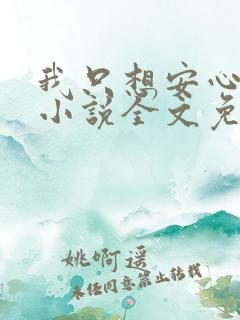 我只想安心
小说全文免
姚啊遥
未任同意禁止转载